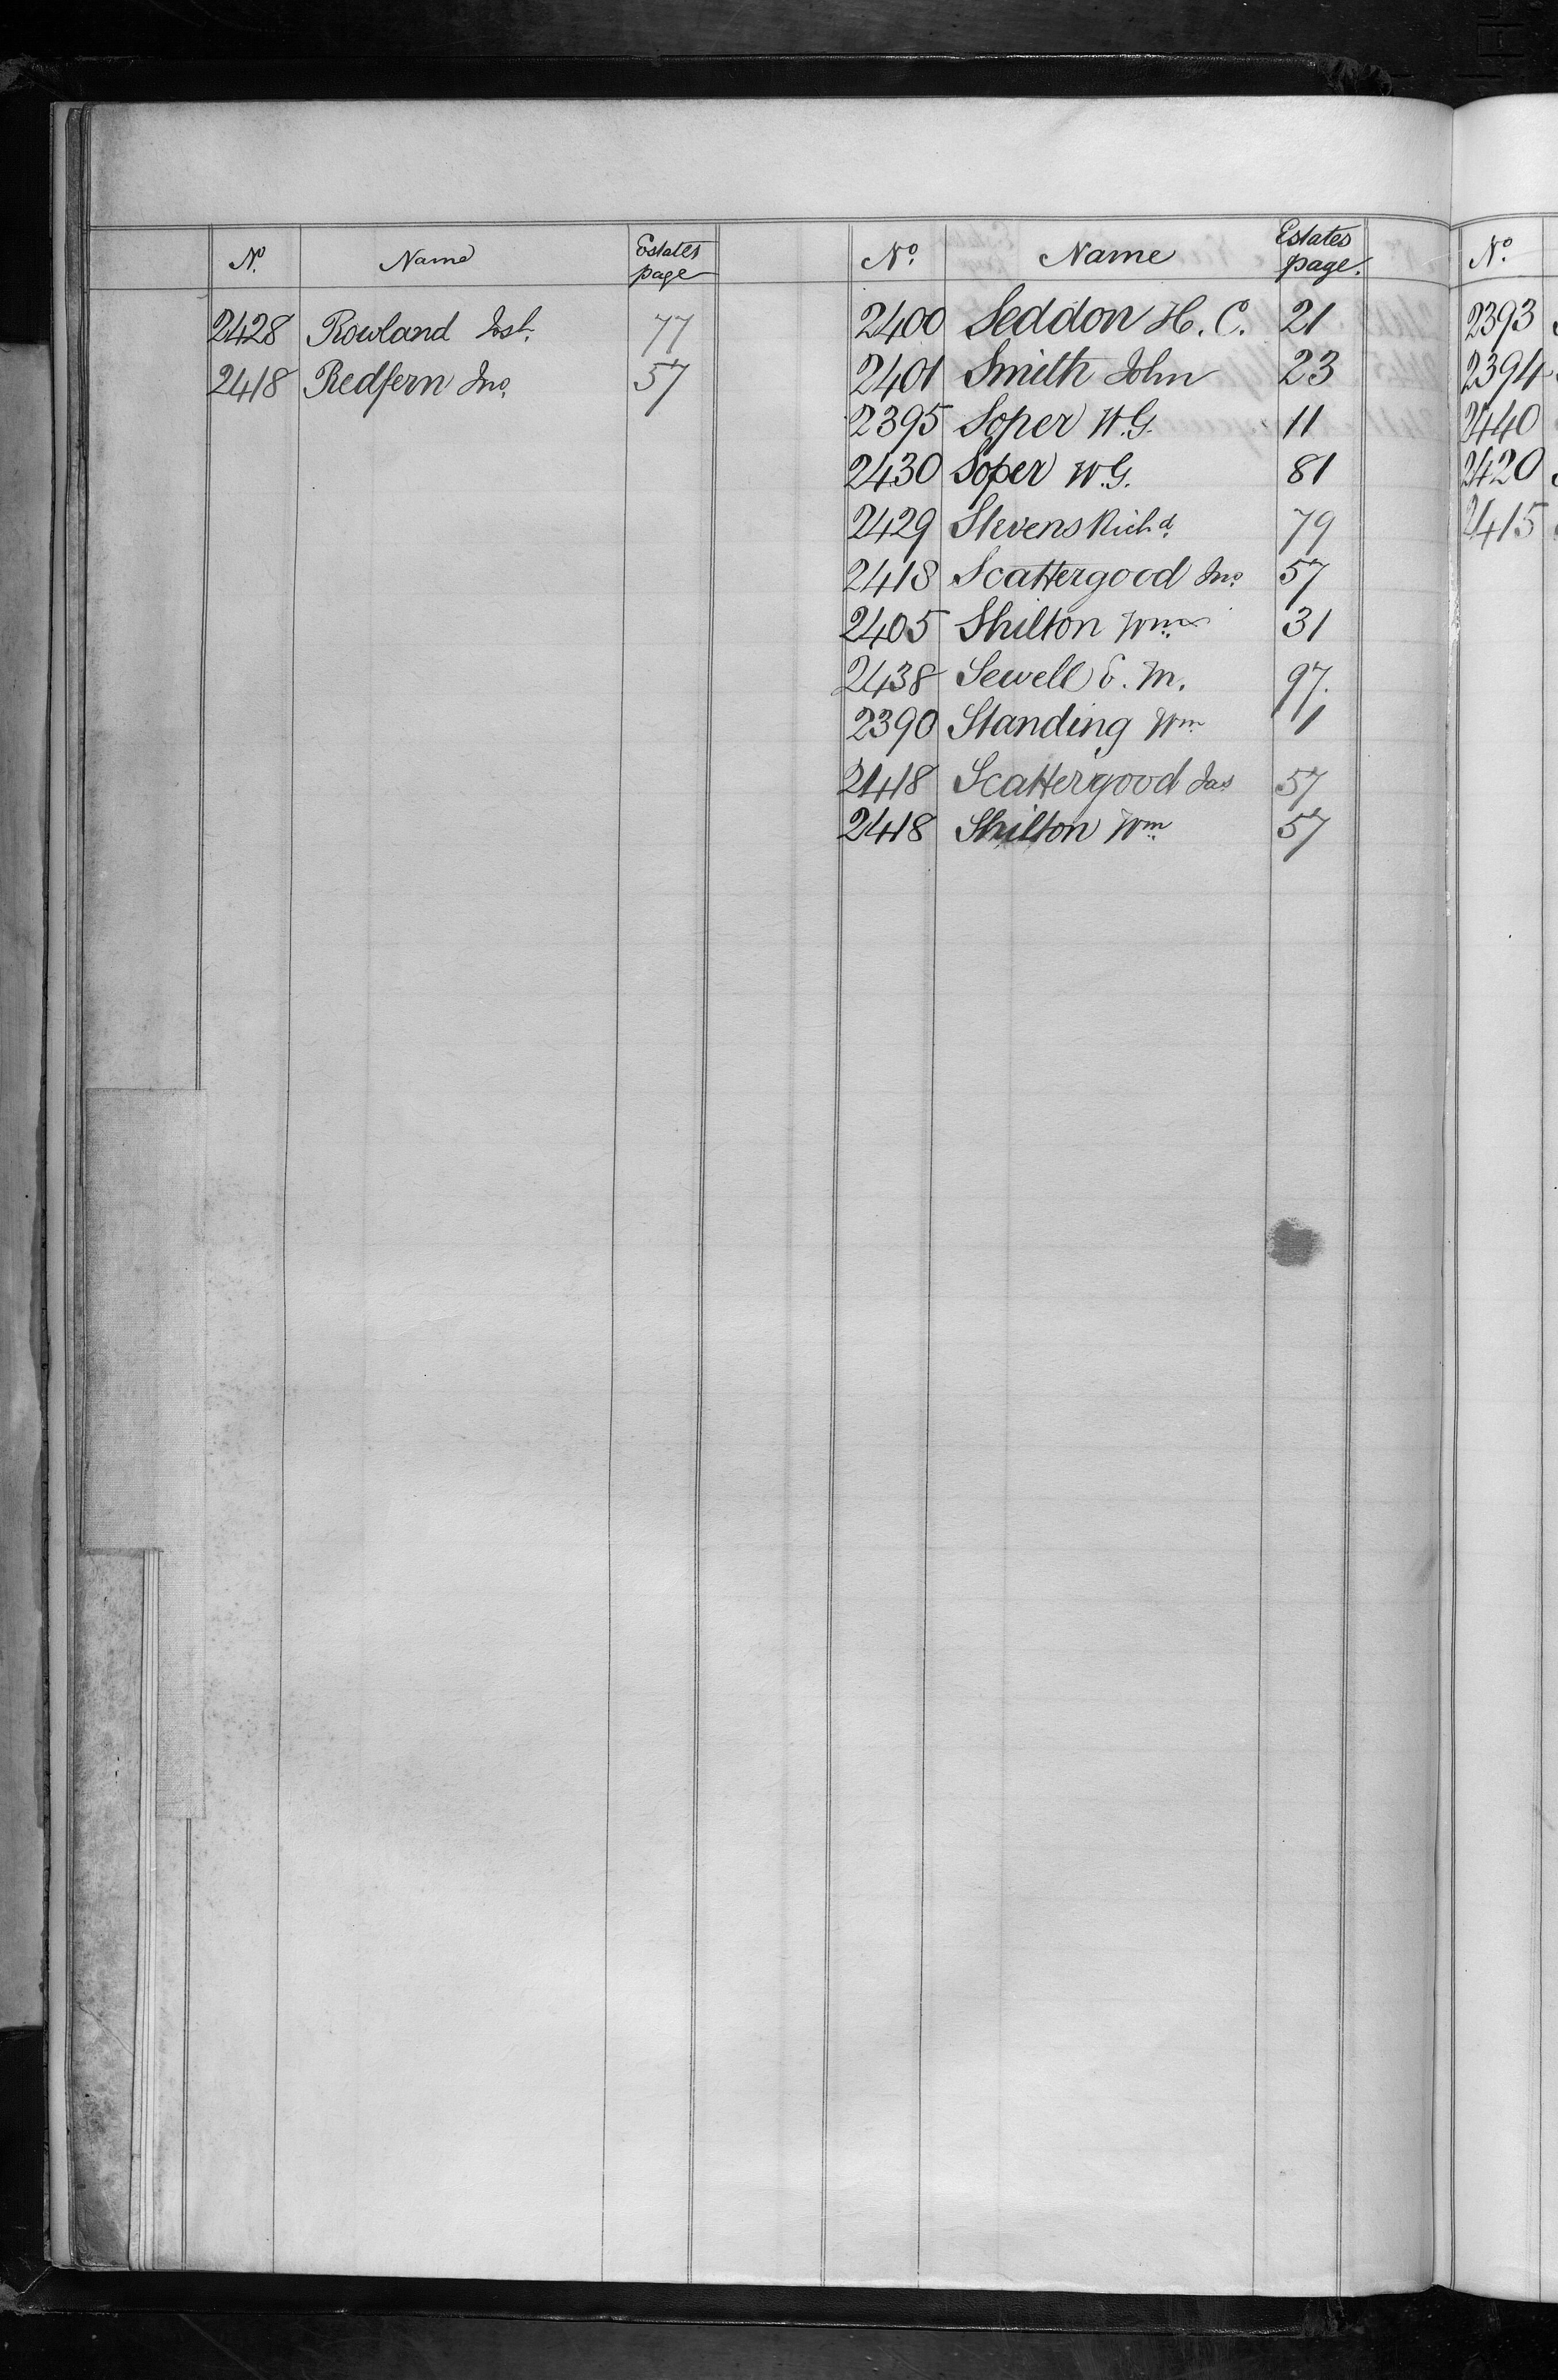 No. Name Estates page
2428 Rowland Josh. 77
2418 Redfern Jno. 57
No. Name Estates page.
2400 Seddon H. C. 21
2401 Smith John 23
2395 Soper W.G. 11
2430 Soper W.G. 81
2429 Stevens Richd. 79
2418 Scattergood Jno. 57
2405 Shilton Wm. 31
2438 Sewell E. M. 97.
2390 Standing Wm. 1
2418 Scattergood Jas 57
2418 Shilton Wm. 57
No.
2393
2394
2440
2420
2415